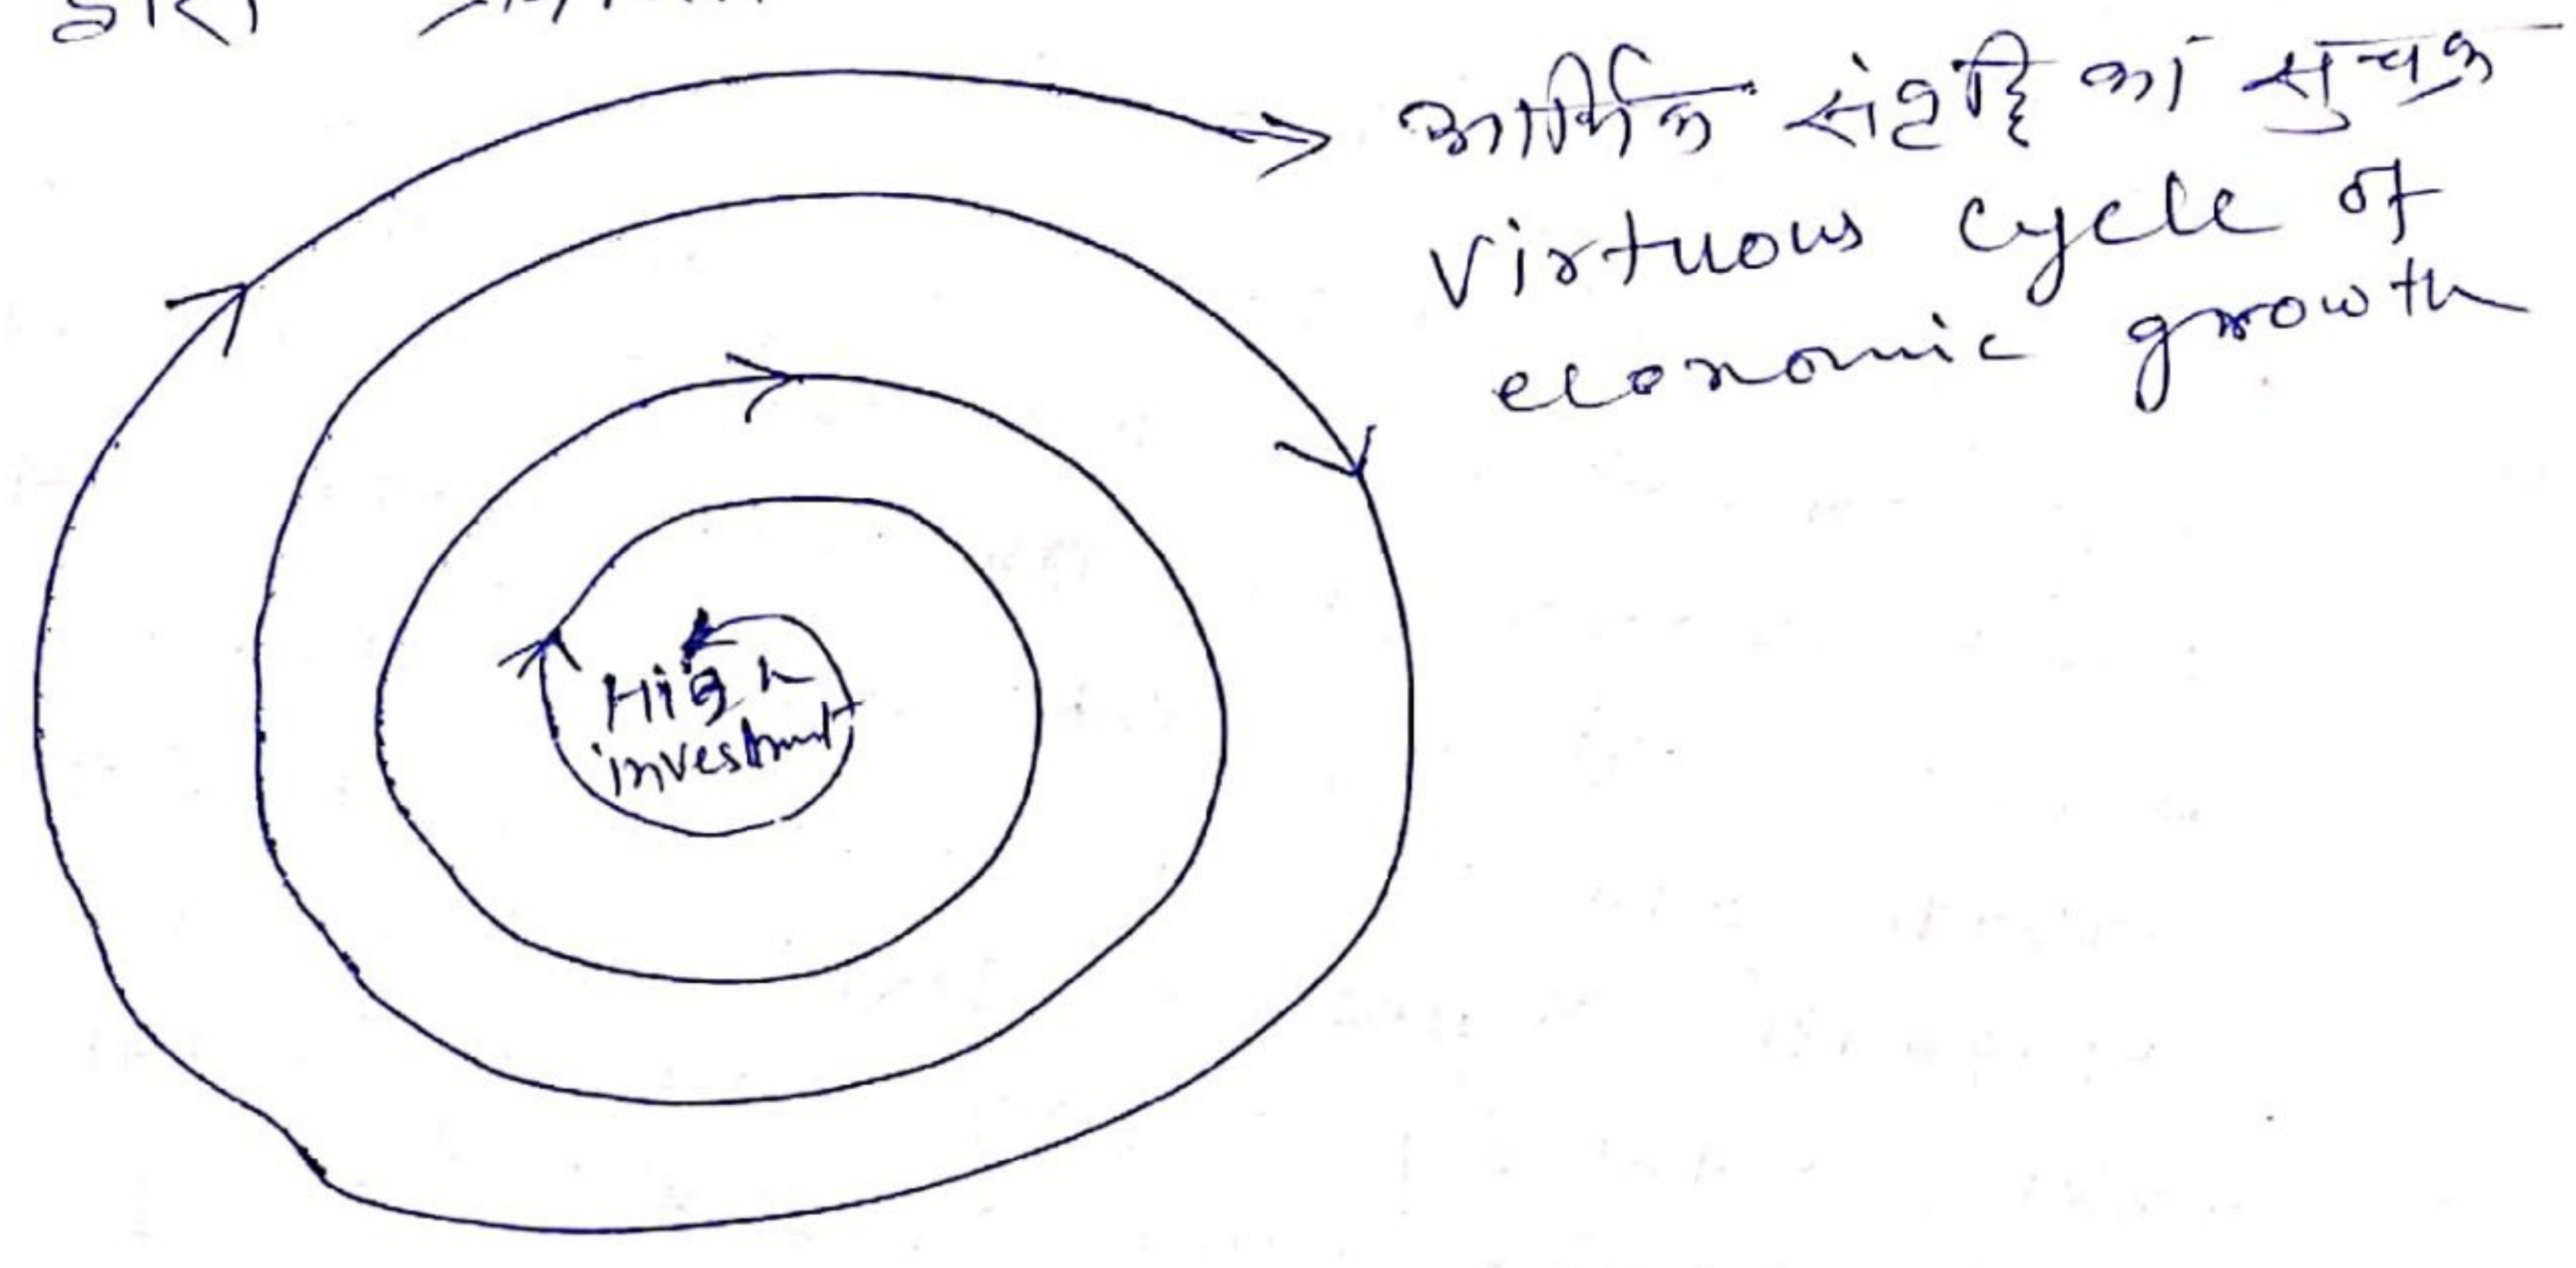 आर्थिक संवृद्धि का सुचक
Virtuous cycle of
economic growth
High
investment